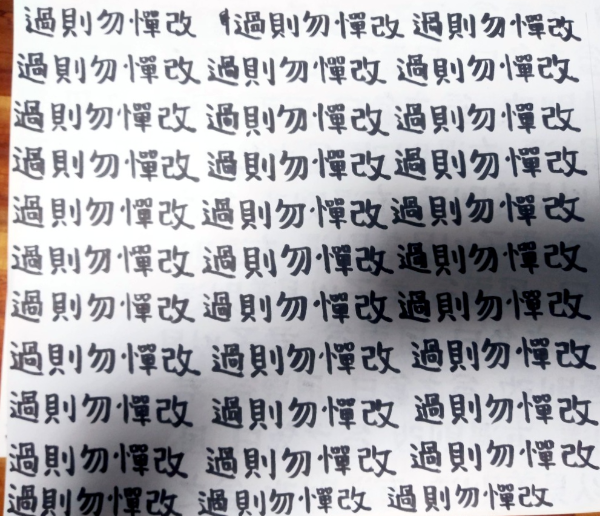 過則勿憚改 過則勿憚改 過則勿憚改
過則勿憚改 過則勿憚改 過則勿憚改
過則勿憚改 過則勿憚改 過則勿憚改
過則勿憚改 過則勿憚改 過則勿憚改
過則勿憚改 過則勿憚改 過則勿憚改
過則勿憚改 過則勿憚改 過則勿憚改
過則勿憚改 過則勿憚改 過則勿憚改
過則勿憚改 過則勿憚改 過則勿憚改
過則勿憚改 過則勿憚改 過則勿憚改
過則勿憚改 過則勿憚改 過則勿憚改
過則勿憚改 過則勿憚改 過則勿憚改